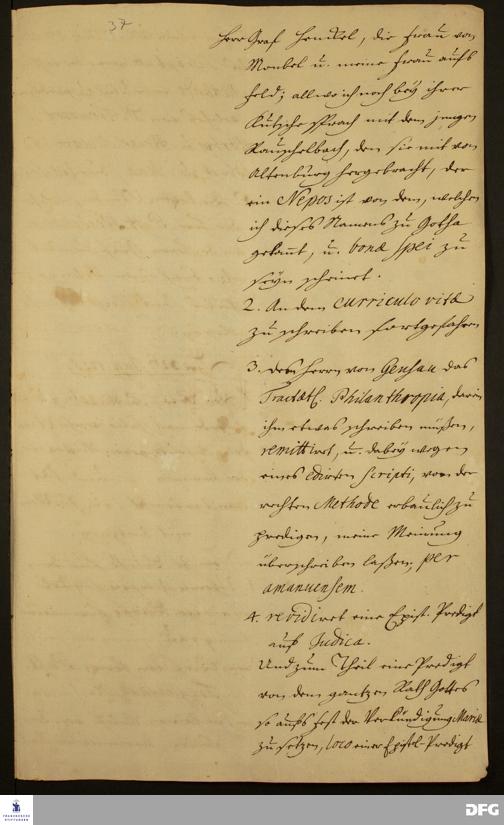 37
Herr Graf Henckel, die Frau von
Monbel u. meine Frau aufs
Feld; allwo ich noch bey ihrer
Kutsche sprach mit dem jungen
Rauschelbach, den sie mit von
Altenburg hergebracht, der
ein Nepos ist von dem, welchen
ich dieses Namens zu Gotha
gekannt, u. bonae spei zu
seyn scheinet.
2. An dem curriculo vitae
zu schreiben fortgefahren
3. dem Herrn von Geusau das
Tractätl. Philanthropia, darin
ihm etwas schreiben müßen,
remittiret, u. dabey wegen
eines edirten scripti, von der
rechten Methode erbaulich zu
predigen, meine Meinung
überschreiben laßen, per
amanuensem.
4. revidiret eine Epist. Predigt
aufs Judica.
Und zum Theil eine Predigt
von dem gantzen Rath Gottes
so aufs Fest der Verkündigung Mariae
zu setzen, loco einer Epistel-Predigt
FRANCKESCHE
STIFTUNGEN
DFG